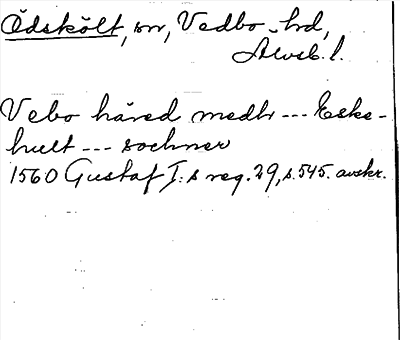 Ödskölt, sn, Vedbo hd,
Älvsb. l.
Vebo häred medh --- Eske-
hult --- sochner
1560 Gustaf I:s reg. 29, s. 545. avskr.